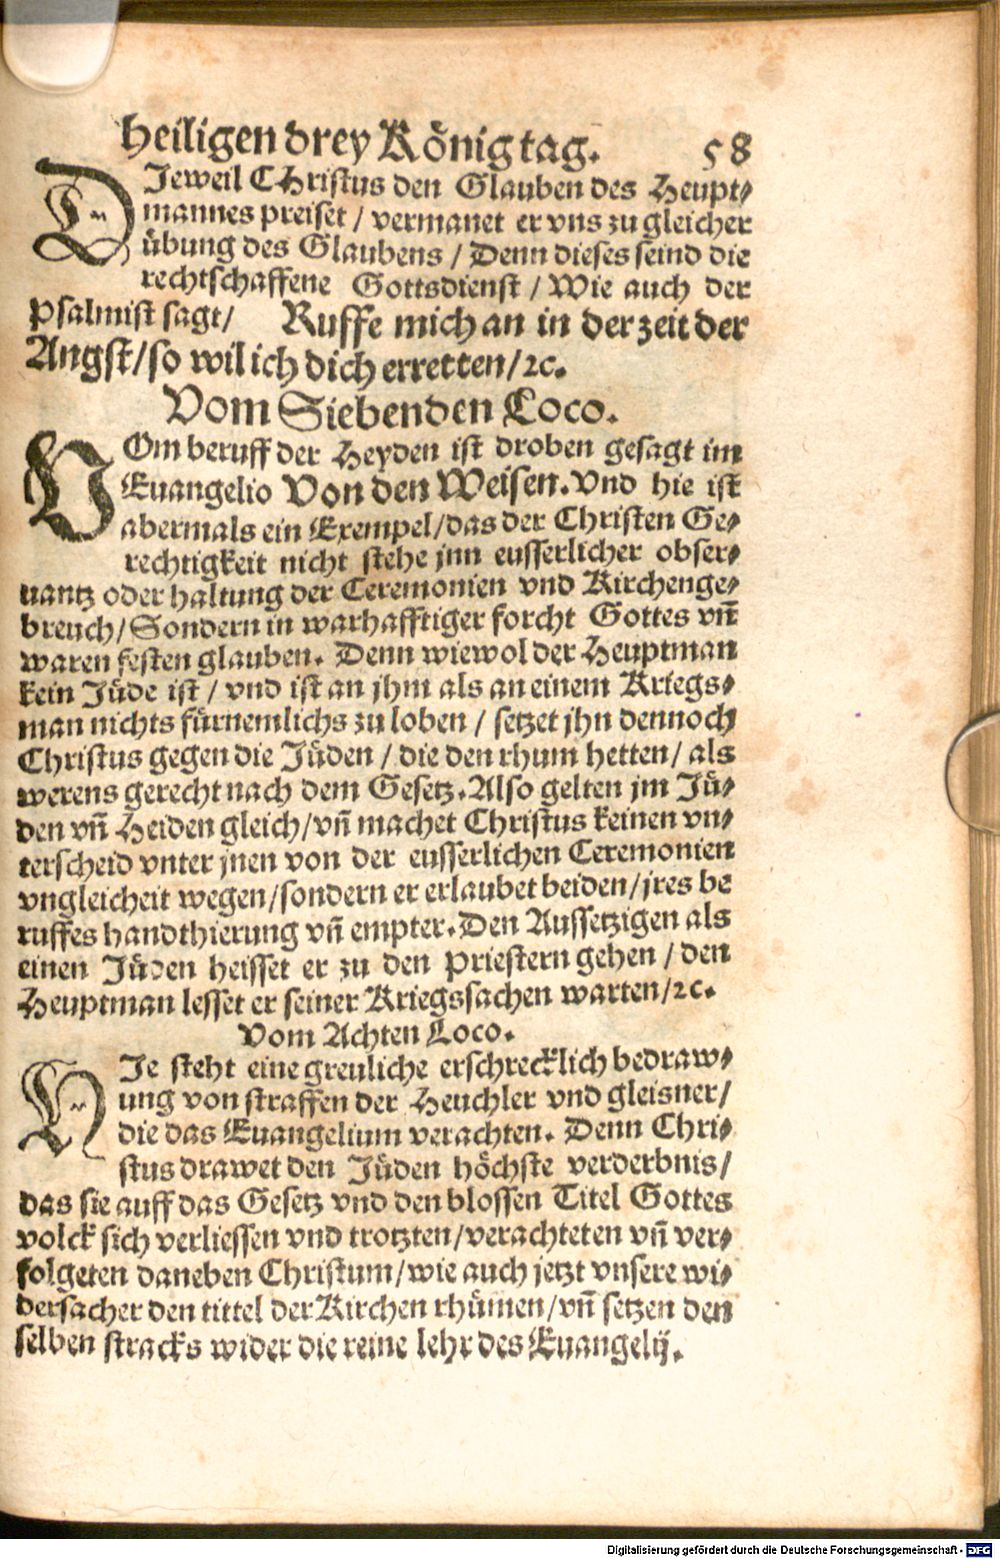 heiligen drey König tag. 58
DJeweil CHristus den Glauben des Heupt⸗
mannes preiset / vermanet er vns zu gleicher
übung des Glaubens / Denn dieses seind die
rechtschaffene Gottsdienst / Wie auch der
Psalmist sagt / Ruffe mich an in der zeit der
Angst / so wil ich dich erretten / ⁊c.
Vom Siebenden Loco.
VOm beruff der Heyden ist droben gesagt im
Euangelio Von den Weisen. Vnd hie ist
abermals ein Exempel / das der Christen Ge⸗
rechtigkeit nicht stehe jnn eusserlicher obser⸗
uantz oder haltung der Ceremonien vnd Kirchenge⸗
breuch / Sondern in warhafftiger forcht Gottes vñ
waren festen glauben. Denn wiewol der Heuptman
kein Jüde ist / vnd ist an jhm als an einem Kriegs⸗
man nichts fürnemlichs zu loben / setzet jhn dennoch
Christus gegen die Jüden / die den rhum hetten / als
werens gerecht nach dem Gesetz. Also gelten jm Jü⸗
den vñ Heiden gleich / vñ machet Christus keinen vn⸗
terscheid vnter jnen von der eusserlichen Ceremonien
vngleicheit wegen / sondern er erlaubet beiden / jres be
ruffes handthierung vñ empter. Den Aussetzigen als
einen Jüden heisset er zu den Priestern gehen / den
Heuptman lesset er seiner Kriegssachen warten / ⁊c.
Vom Achten Loco.
HJe steht eine greuliche erschrecklich bedraw⸗
ung von straffen der Heuchler vnd gleisner /
die das Euangelium verachten. Denn Chri⸗
stus drawet den Jüden höchste verderbnis /
das sie auff das Gesetz vnd den blossen Titel Gottes
volck sich verliessen vnd trotzten / verachteten vñ ver⸗
folgeten daneben Christum / wie auch jetzt vnsere wi⸗
dersacher den tittel der Kirchen rhümen / vñ setzen den
selben stracks wider die reine lehr des Euangelij.
Digitalisierung gefördert durch die Deutsche Forschungsgemeinschaft - DFG